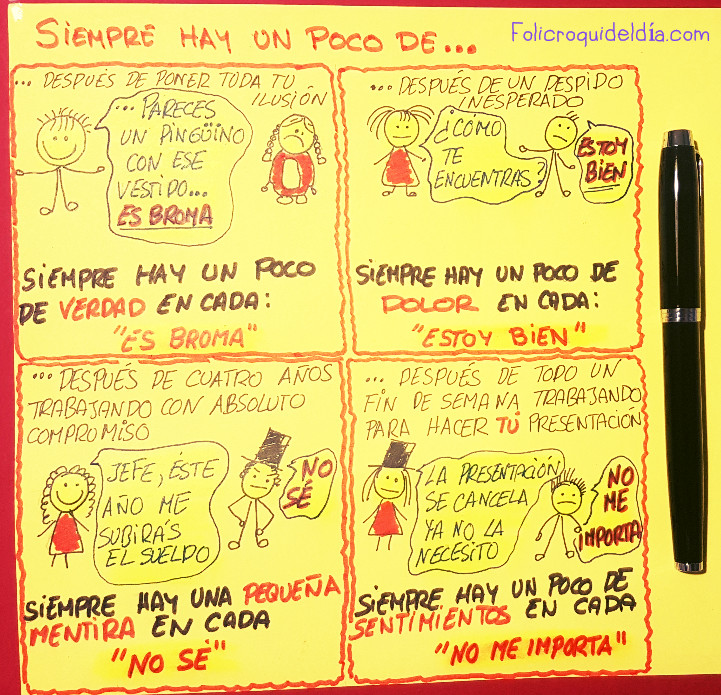 SIEMPRE HAY UN POCO DE...
Folicroquideldía.com
... DESPUÉS DE PONER TODA TU
ILUSIÓN
... PARECES
UN PINGÜINO
CON ESE
VESTIDO...
ES BROMA
SIEMPRE HAY UN POCO
DE VERDAD EN CADA:
"ES BROMA"
... DESPUÉS DE UN DESPIDO
INESPERADO
¿CÓMO
TE
ENCUENTRAS?
ESTOY
BIEN
SIEMPRE HAY UN POCO DE
DOLOR EN CADA:
"ESTOY BIEN"
... DESPUÉS DE CUATRO AÑOS
TRABAJANDO CON ABSOLUTO
COMPROMISO
JEFE, ÉSTE
AÑO ME
SUBIRÁS
EL SUELDO
NO
SÉ
SIEMPRE HAY UNA PEQUEÑA
MENTIRA EN CADA
"NO SÉ"
... DESPUÉS DE TODO UN
FIN DE SEMANA TRABAJANDO
PARA HACER TÚ PRESENTACIÓN
LA PRESENTACIÓN
SE CANCELA
YA NO LA
NECESITO
NO
ME
IMPORTA
SIEMPRE HAY UN POCO DE
SENTIMIENTOS EN CADA
"NO ME IMPORTA"